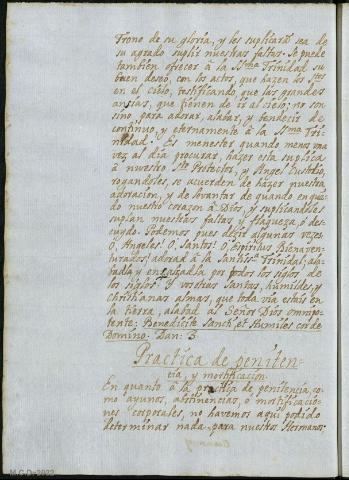 trono de su gloria, y les suplicarà sea de
su agrado suplir nuestras faltas. Se puede
tambien ofrecer à la SSma Trinidad su
buen deseo, con los actos, que hazen los Stos
en el cielo, testificando, que las grandes
ansias, que tienen de ir al cielo; no son
sino para adorar, alabar, y bendecir de
continuo, y eternamente à la SSma Tri-
nidad. Es menester quando menos una
vez al dia procurar, hazer esta suplica
à nuestro Sto Protector, y Angel Custodio,
rogandoles, se acuerden de hazer nuestra
adoracion, y de levantar de quando en qua-
do nuestro corazon à Dios, y suplicandoles
suplan nuestras faltas y flaqueza, ò des-
cuydo. Podemos pues decir algunas vezes
O, Angeles! O, Santos! O, Espiritus Bienaven-
turados! adorad à la Santissa Trinidad, ala-
bada y ensalzada por todos los siglos de
los siglos. Y vosotras Santas, humildes, y
Christianas almas, que todavia estais en
la tierra, alabad al Señor Dios omnipo-
tente; Benedicite Sancti, et humiles corde
Domino. Dan. 3.
Practica de peniten-
cia, y mortificacion
En quanto à la practica de penitencia, co-
mo ayunos, abstinencias, ò mortificacio-
nes corporales, no havemos aqui podido
determinar nada para nuestros Hermanos;
M.C.D.2022